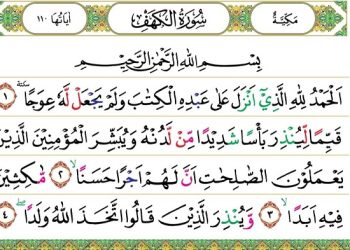 مَكِّيَّةٌ سُورَةُ الْكَهْفِ اٰيَاتُهَا ١١٠
بِسْمِ اللهِ الرَّحْمٰنِ الرَّحِيْمِ
اَلْحَمْدُ لِلّٰهِ الَّذِيْٓ اَنْزَلَ عَلٰى عَبْدِهِ الْكِتٰبَ وَلَمْ يَجْعَلْ لَّهٗ عِوَجًا ۜ ١
قَيِّمًا لِّيُنْذِرَ بَأْسًا شَدِيْدًا مِّنْ لَّدُنْهُ وَيُبَشِّرَ الْمُؤْمِنِيْنَ الَّذِيْنَ
يَعْمَلُوْنَ الصّٰلِحٰتِ اَنَّ لَهُمْ اَجْرًا حَسَنًا ۙ ٢ مَّٰكِثِيْنَ
فِيْهِ اَبَدًا ۙ ٣ وَّيُنْذِرَ الَّذِيْنَ قَالُوا اتَّخَذَ اللهُ وَلَدًا ۖ ٤